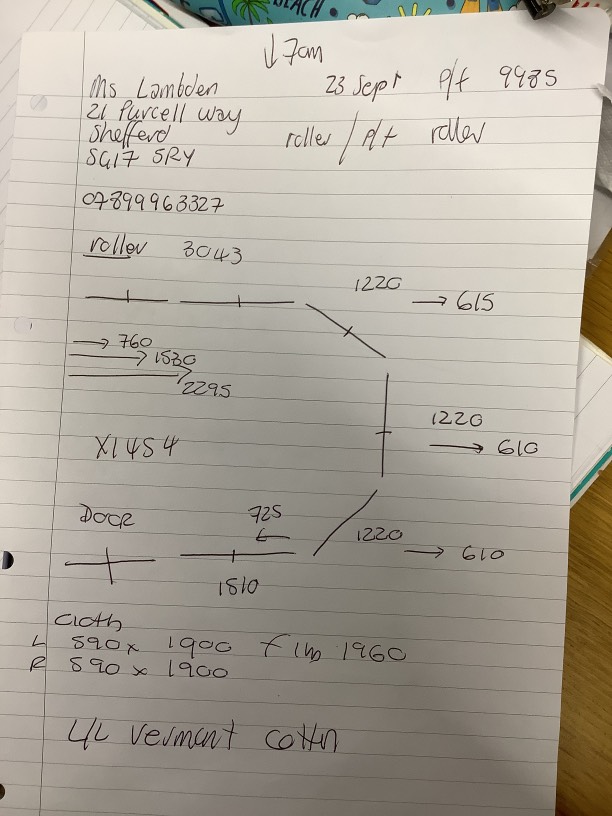 BEACH
↓7cm
Ms Lambden 23 Sept P/t 9985
21 Purcell Way
Shefferd roller / P/t roller
SG17 5RY
07899963327
roller 3043
1220 → 615
→ 760
→ 1530
→ 2295
1220
→ 610
X1454
DOOR 725
←
1220 → 610
1510
Cloth
L 590 x 1900 1960
R 590 x 1900
L/L vermont cottn